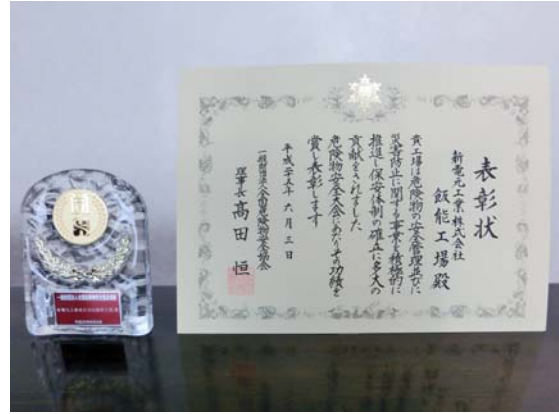 表彰状
新電元工業株式会社
飯能工場殿
貴工場は危険物の安全管理並びに
災害防止に関する事業を積極的に
推進し保安体制の確立に多大の
貢献をされました
危険物安全大会にあたりその功績を
賞し表彰します
平成二十五年六月三日
一般財団法人全国危険物安全協会
理事長 高田恒